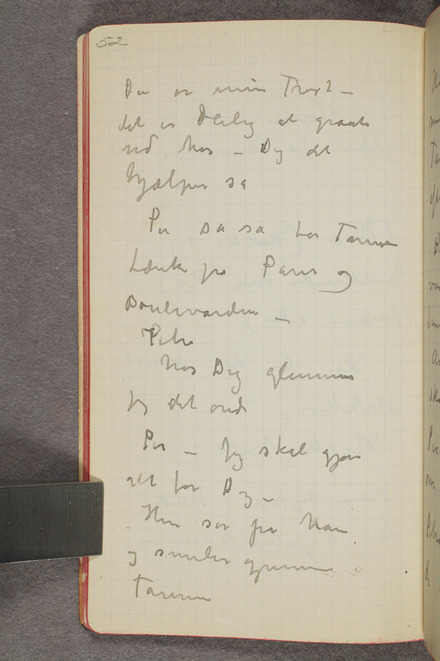 52
Du er min Trøst –
det er deilig at graate
ud hos – Dig det
hjælper sa
Per sa sa tør Taarene
tænk paa Paris og
Boulevarden –
hos Dig glemmer
jeg det onde
Per – Jeg skal gjøre
alt for Dig –
Hun ser paa ham
og smiler gjennem
Taarene